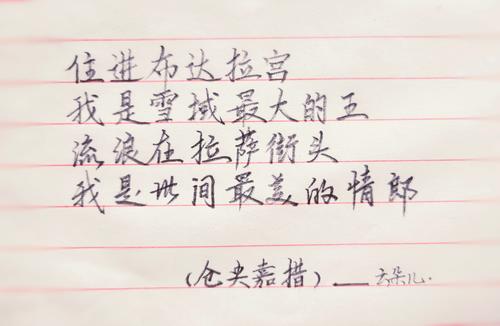 住进布达拉宫
我是雪域最大的王
流浪在拉萨街头
我是世间最美的情郎
(仓央嘉措)——云朵儿.